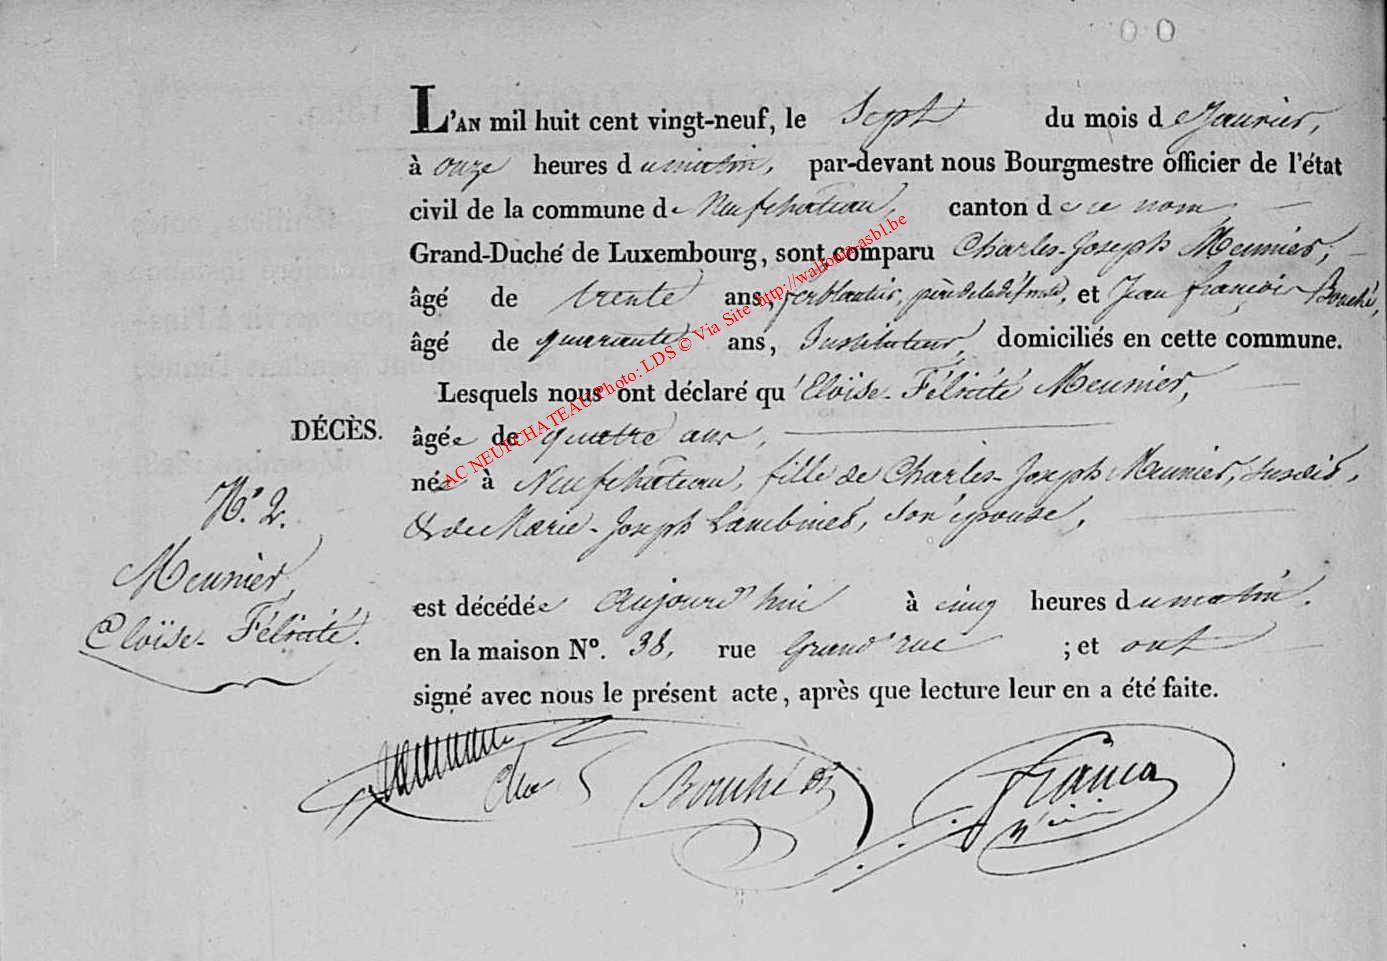 L'AN mil huit cent vingt-neuf, le Sept du mois de Janvier,
à onze heures du matin, par-devant nous Bourgmestre officier de l'état
civil de la commune de Neufchateau, canton de ce nom,
Grand-Duché de Luxembourg, sont comparu Charles-Joseph Meunier,
âgé de trente ans, ferblantier, père de la défunte, et Jean françois Bouché,
âgé de quarante ans, Instituteur, domiciliés en cette commune.
Lesquels nous ont déclaré qu'Eloise-Félicité Meunier,
DÉCÈS.
âgée de quatre ans,
née à Neufchateau, fille de Charles-Joseph Meunier, susdit,
& de Marie-Joseph Lambinet, son épouse,
N.° 2.
Meunier,
Eloïse-Félicité.
est décédée aujourd'hui à cinq heures du matin.
en la maison N°. 38, rue Grand'rue ; et ont
signé avec nous le présent acte, après que lecture leur en a été faite.
Bouché
AC NEUFCHATEAU Photo: LDS © Via Site http://wallonia-asbl.be